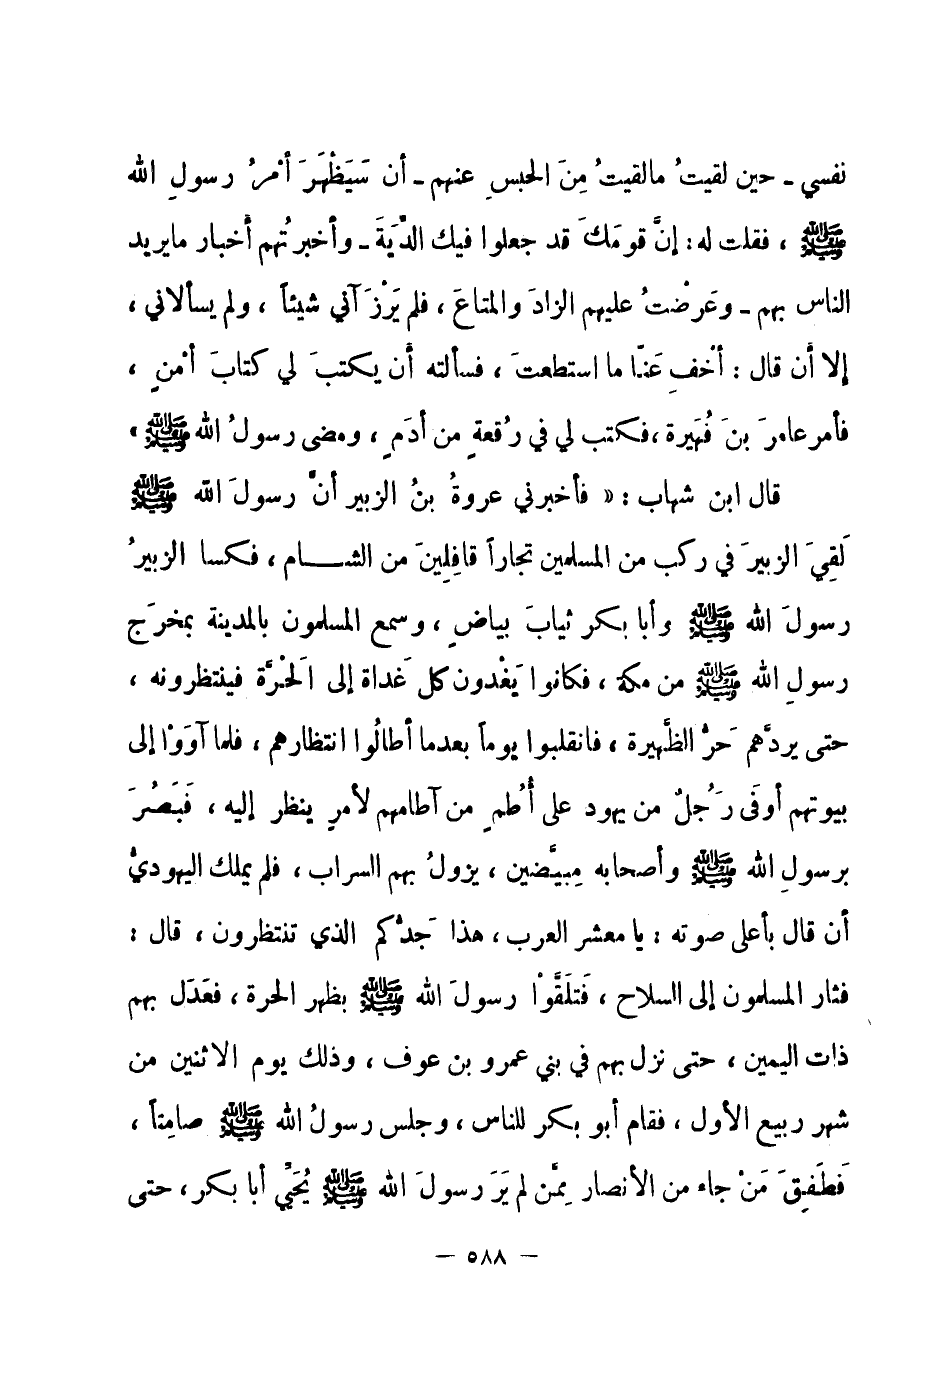 نفسي ـ حين لقيتُ مالقيتُ مِنَ الحبسِ عنهم ـ أن سَيَظْهَرَ أمْرُ رسولِ الله
ﷺ ، فقلت له: إنَّ قومَكَ قد جعلوا فيك الدِّيَةَ ـ وأخبرتُهم أخبار مايريد
الناس بهم ـ وعَرضْتُ عليهم الزادَ والمتاعَ ، فلم يَرْزَآني شيئاً ، ولم يسألاني ،
إلا أن قال : أخْفِ عَنّا ما استطعتَ ، فسألته أن يكتبَ لي كتابَ أمْنٍ ،
فأمر عامرَ بنَ فُهَيرة ،فكتب لي في رُقعةٍ من أدَمٍ ، ومضى رسولُ الله ﷺ »
قال ابن شهاب : « فأخبرني عروةُ بنُ الزبير أنَّ رسولَ الله ﷺ
لَقِيَ الزبيرَ في ركب من المسلمين تجاراً قافِلِينَ من الشام ، فكسا الزبيرُ
رسولَ الله ﷺ وأبا بكر ثيابَ بياضٍ ، وسمع المسلمون بالمدينة بمخرَج
رسولِ الله ﷺ من مكة ، فكانوا يَغْدون كل غَداة إلى الحْرَّة فينتظرونه ،
حتى يردَّهم حَرُّ الظَّهيرة ، فانقلبوا يوماً بعدما أطالُوا انتظارهم ، فلما آوَوْا إلى
بيوتهم أوفَى رَجُلٌ من يهود على أُطُمٍ من آطامهم لأمرٍ ينظر إليه ، فَبَصُرَ
برسولِ الله ﷺ وأصحابه مِبيَّضين ، يزولُ بهم السراب ، فلم يملك اليهوديُّ
أن قال بأعلى صوته : يا معشر العرب، هذا جَدُّكم الذي تنتظرون ، قال :
فثار المسلمون إلى السلاح ، فَتلَقَّوْا رسولَ الله ﷺ بظهر الحرة ، فعَدَل بهم
ذات اليمين ، حتى نزل بهم في بني عمرو بن عوف ، وذلك يوم الاثنين من
شهر ربيع الأول ، فقام أبو بكر للناس ، وجلس رسولُ الله ﷺ صامِتاً ،
فَطَفِقَ مَنْ جاء من الأنصار مِمَّن لم يَرَ رسولَ الله ﷺ يُحَيِّي أبا بكر ، حتى
— ٥٨٨ —